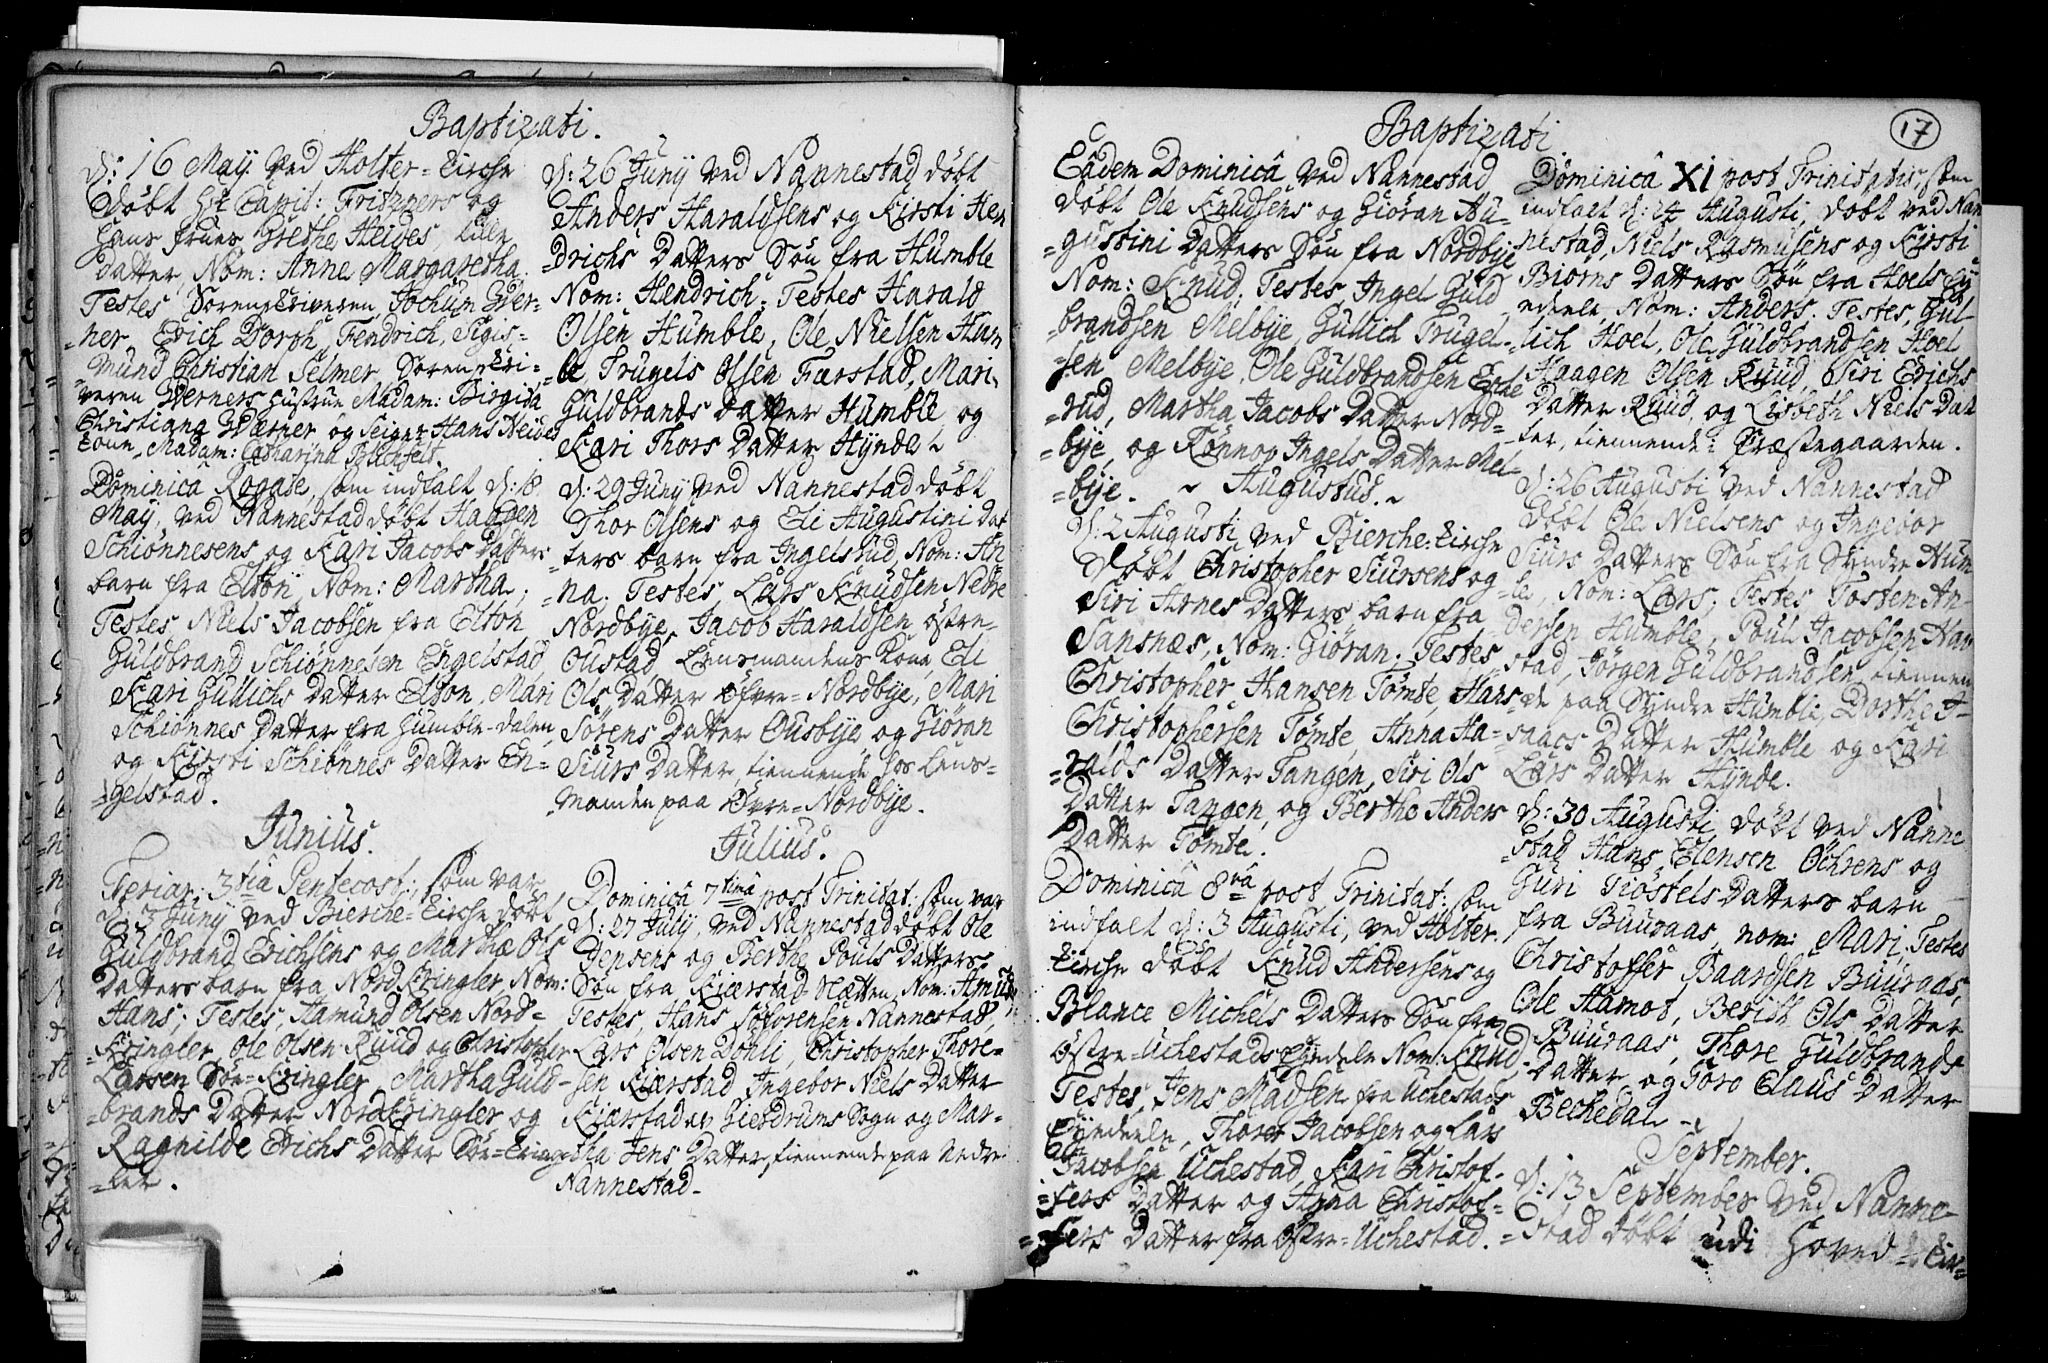 Baptizati.
d: 16 Maÿ ved Holter-Kirche
döbt Hr Capit: Fritzners og
hans frues Grethe Heides, lille
datter, Nom: Anne Margaretha.
Testes Sorenskriveren Jochum Wer-
=ner, Erich Dorph, Fendrich, Sigis-
=mund Christian Selmer Sorenskri-
veren Werners hustrue Madam: Birgida
Christiana Werner og Seigr Hans Heides
kone Madam: Catharina
Dominica Rogate, som indfalt d: 18
Maÿ, ved Nannestad döbt Haagen
Schiönnesens og Kari Jacobs datters
barn fra Elton, Nom: Martha,
Testes Niels Jacobsen fra Elton
Guldbrand Schiönnesen Engelstad
Kari Gullichs Datter Elton, Mari
Schiönnes Datter fra Humble-dalen
og Kirsti Schiönnes Datter En=
=gelstad.
Junius.
Feriar: 3tia Pentecost:, som var
d: 3 Junÿ ved Bierche-Kirche döbt
Guldbrand Erichsens og Martha Ols
Datters barn fra Nord Kringler, Nom:
Hans; Testes, Hamund Olsen Nord=
=Kringler, Ole Olsen Ruud og Christopher
Larsen Sör-Kringler, Martha Guld-
=brands Datter Nordkringler og
Ragnilde Erichs Datter Sör-Kring-
=ler.
d: 26 Junÿ ved Nannestad döbt
Anders Haraldsens og Kirsti Hen
=drichs Datters Sön fra Humble
Nom: Hendrich. Testes Harald
Olsen Humble, Ole Nielsen Hum
=le Trugels Olsen Færstad, Mari
Guldbrands Datter Humble, og
Kari Thors Datter Hÿnde.
d: 29 Junÿ ved Nannestad döbt
Thor Olsens og Eli Augustini Dat
=ters barn fra Ingelsrud, Nom: An
=na. Testes Lars Knudsen Nedre
Nordbÿe, Jacob Haraldsen östre-
Oustad, Lensmandens kone, Eli
Ols Datter Öfvre-Nordbÿe, Mari
Sörens Datter Ousbÿe, og Giöran
Siurs Datter, tiennende hos Lens=
=manden paa Övre-Nordbÿe.
Julius.
Dominica 7tima post Trinitat: som var
d: 27 Julÿ, ved Nannestad döbt Ole
Jensens og Berthe Pouls Datters
Sön fra Kierstad Nom: Amund
Testes, Hans Söforensen Nannestad,
Lars Olsen Döhli, Christopher Thore-
=sen Kierstad, Ingebor Niels Datter
Kierstad av Gierdrums Sogn og Mar-
=tha Jens Datter, tiennende paa nedre
Nannestad-
Baptizati.
17
Eâdem Dominicâ ved Nannestad
döbt Ole Knudsens og Giöran Au-
=gustini Datters Sön fra Nordbÿe
Nom: Knud, Testes Ingel Guld
brandsen Melbÿe, Gullich Trugel-
=sen Melbÿe, Ole Guldbrandsen Egde
=rud, Martha Jacobs Datter Nord=
=bÿe, og Rönnov Ingels Datter Mel-
=bÿe. ~ Augustus. ~
d: 2 Augusti, ved Bierche-Kirche
döbt Christopher Siursens og
Siri Arnes Datters barn fra
Sansnæs, Nom: Giöran. Testes
Christopher Hansen Tömte, Hans
Christophersen Tömte, Anna Ha-
=ralds Datter Tangen, Siri Ols
Datter Tangen, og Berthe Anders
Datter Tömte.
Dominicâ 8va post Trinitat: som
indfalt d: 3 Augusti, ved Holter-
Kirche döbt Knud Andersens og
Blance Michels Datters Sön fra
östre-Uchestads Eÿedele, Nom: Knud
Testes, Jens Madsen fra Uchestads
Eÿedele, Thores Jacobsen og Lars
Jacobsen Uchestad, Kari Christof-
=fers Datter og Anna Christof-
=fers Datter fra Östre-Uchestad.
Dominicâ XI post Trinitatis, som
indfalt d: 24 Augusti, döbt ved Nan
nestad, Niels Rasmusens og Kirsti
Biörns Datters Sön fra Hoels Eÿ
edeele, Nom: Anders. Testes, Gul-
=lich Hoel, Ole Guldbrandsen Hoel
Haagen Olsen Ruud, Siri Erichs
Datter Ruud, og Lisbeth Niels Dat
ter, tiennende i Præstegaarden.
d: 26 Augusti ved Nannestad
döbt Ole Nielsens og Ingebor
Siurs Datters Sön fra Sÿndre Hum
=le, Nom: Lars, Testes Tosten An-
dersen Humble, Poul Jacobsen Nan
=stad, Jörgen Guldbrandsen tiennen
=de paa Sÿndre Humble, Dorthe I-
=saacs Datter Humble og Kari
Lars Datter Hÿnde.
d: 30 Augusti döbt ved Nanne
stad Hans Elensen Öchrens og
Guri Kiöstels Datters barn
fra Buuraas, nom: Mari, Testes
Christoffer Baardsen Buuraas,
Ole Hamos, Berith Ols Datter
Buuraas, Thore Guldbrands
Datter og Toro Claus Datter
Bechedal -
September.
d: 13 September ved Nanne-
=stad döbt udi Hoved-Kir=